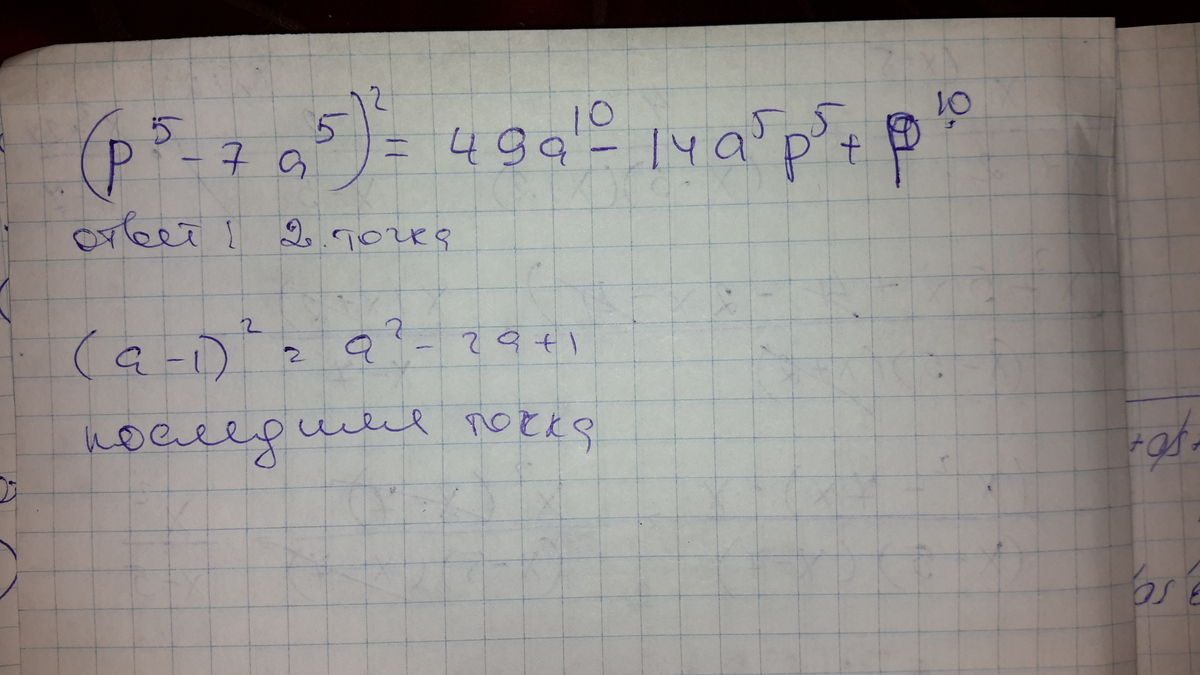 (p⁵ - 7 a⁵)² = 49a¹⁰ - 14a⁵p⁵ + p¹⁰
ответ: 2. точка
(a - 1)² = a² - 2a + 1
последняя точка